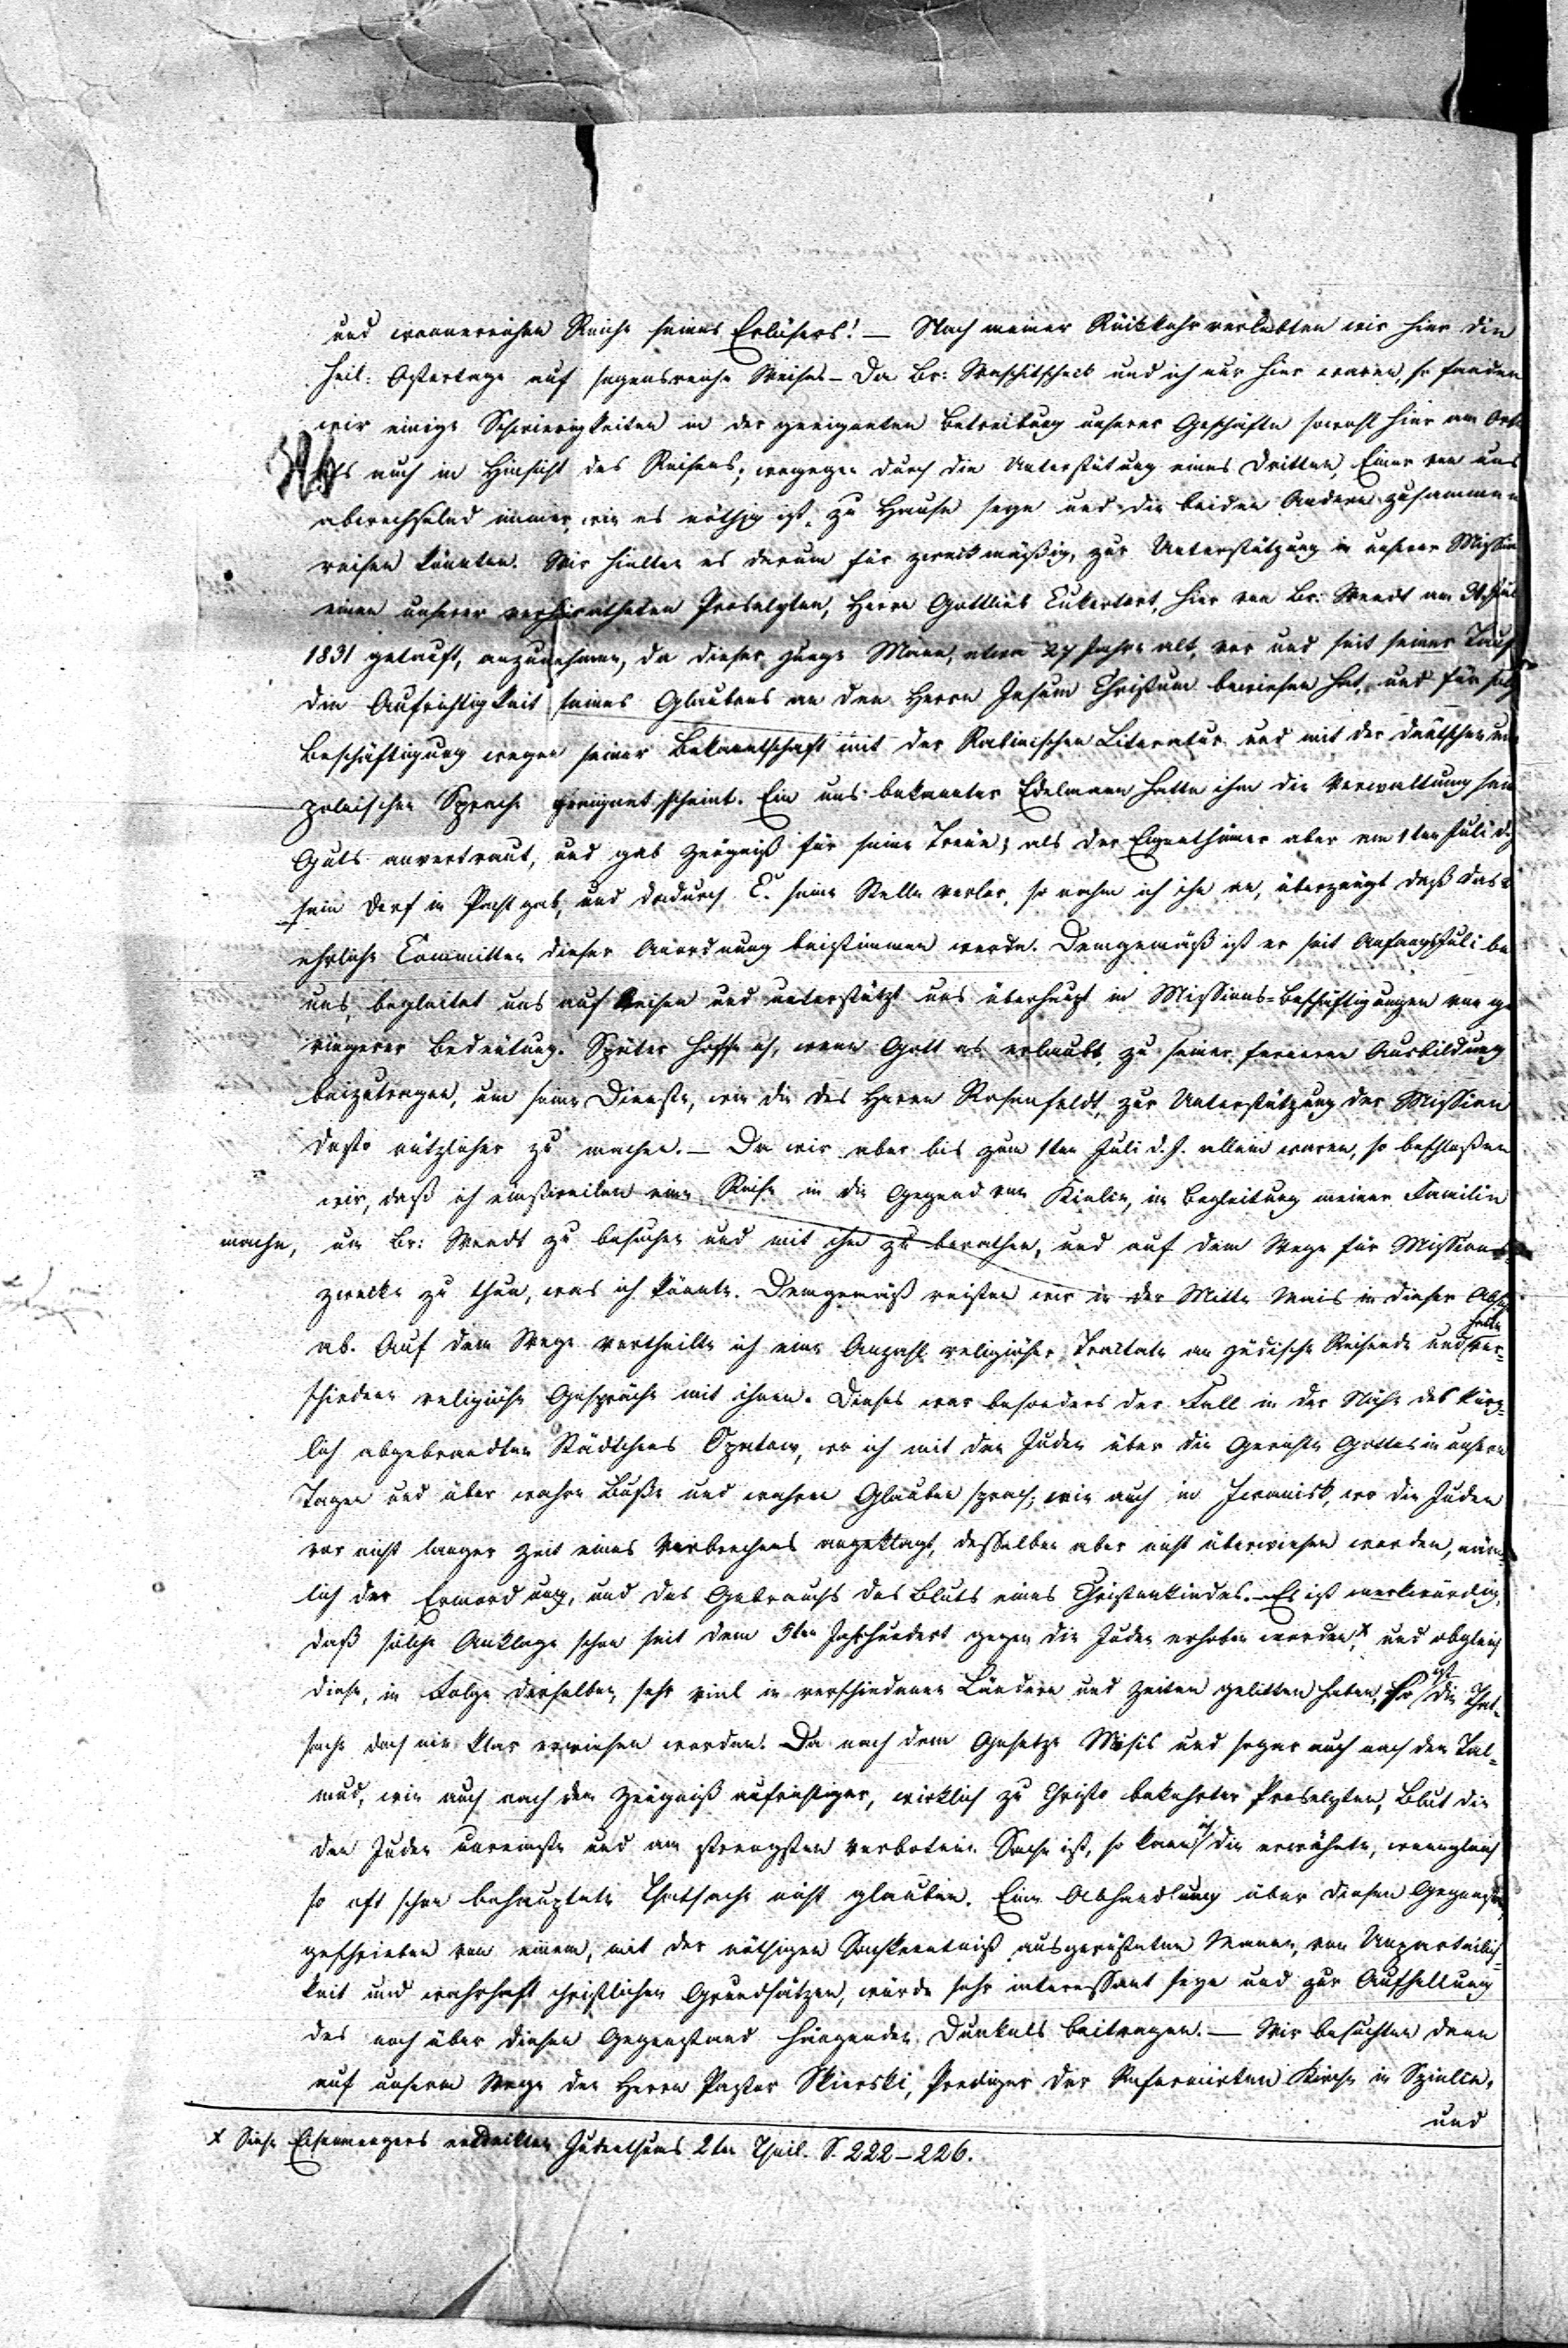 und wonnereichen Reiche seines Erlösers! — Nach meiner Rückkehr verlebten wir hier die
heil: Ostertage auf segensreiche Weise — Da Br: Waschitscheck und ich nur hier waren, so fanden
wir einige Schwierigkeiten in der geeigneten Betreibung unserer Geschäfte sowohl hier am Orte
als auch in Hinsicht des Reisens; wogegen durch die Unterstützung eines Dritten, Einer von uns
abwechselnd immer, wie es nöthig ist, zu Hause seyn und die beiden Andern zusammen
reisen könnten. Wir hielten es darum für zweckmäßig, zur Unterstützung in unserer Mission
einen unserer verheiratheten Proselyten, Herrn Gottlieb Eukertort, hier von Br: Wendt am
1831 getauft, anzunehmen, da dieser junge Mann, etwa 27 Jahre alt, vor und seit seiner Taufe
die Aufrichtigkeit seines Glaubens an den Herrn Jesum Christum bewiesen hat, und für solche
Beschäftigung wegen seiner Bekanntschaft mit der Rabinischen Literatur und mit der deutschen und
polnischen Sprache geeignet scheint. Ein uns bekannter Edelmann hatte ihm die Verwaltung sein
Guts anvertraut, und gab Zeugniß für seine Treue; als der Eigenthümer aber am 1ten Juli d. J.
sein Dorf in Pacht gab, und dadurch E. seine Stelle verlor, so nahm ich ihn an, überzeugt daß das
ehrliche Committee dieser Anordnung beistimmen werde. Demgemäß ist er seit Anfangs Juli be
uns, begleitet uns auf Reisen und unterstützt uns überhaupt in Missions=Beschäftigungen von ge
ringerer Bedeutung. Später hoffe ich, wenn Gott es erlaubt, zu seiner ferneren Ausbildung
beizutragen, um seine Dienste, wie die des Herrn Rosenfeldt, zur Unterstützung der Mission
desto nützlicher zu machen. — Da wir aber bis zum 1ten Juli d. J. allein waren, so beschloßen
wir, daß ich einstweilen eine Reise in die Gegend von Kielce, in Begleitung meiner Familie
mache, um Br: Wendt zu besuchen und mit ihm zu berathen, und auf dem Wege für Missions=
zwecke zu thun, was ich könnte. Demgemäß reisten wir in der Mitte Mais in dieser Absicht
ab. Auf dem Wege vertheilte ich eine Anzahl religiöser Tractate an jüdische Reisende und hatte ver=
schiedene religiöse Gespräche mit ihnen. Dieses war besonders der Fall in der Nähe des kürz=
lich abgebrandten Städtchens Opatow, wo ich mit den Juden über die Gerichte Gottes in unsern
Tagen und über wahre Buße und wahren Glauben sprach; wie auch in Iwanisk, wo die Juden
vor nicht langer Zeit eines Verbrechens angeklagt, desselben aber nicht überwiesen worden, näm=
lich der Ermordung, und des Gebrauchs des Bluts eines Christenkindes. — Es ist merkwürdig,
daß solche Anklage schon seit dem 5ten Jahrhundert gegen die Juden erhoben worden,x und obgleich
diese, in Folge derselben, sehr viel in verschiedenen Ländern und Zeiten gelitten haben, so ist die That=
sache doch nie klar erwiesen worden. Da nach dem Gesetze Mosis und sogar auch nach dem Tal=
mud, wie auch nach dem Zeugniß aufrichtiger, wirklich zu Christo bekehrter Proselyten, Blut die
den Juden unreinste und am strengsten verbotene Sache ist, so kann ich die erwähnte, wenngleich
so oft schon behauptete Thatsache nicht glauben. Eine Abhandlung über diesen Gegenstand,
geschrieben von einem, mit der nöthigen Sachkenntniß ausgerüsteten Manne, von Unpartheilich=
keit und wahrhaft christlichen Grundsätzen, würde sehr interessant seyn und zur Aufhellung
des noch über diesen Gegenstand hängenden Dunkels beitragen. — Wir besuchten denn
auf unserm Wege den Herrn Pastor Skierski, Prediger der Reformirten Kirche in Szielce,
und
x Siehe Eisenmengers entdecktes Judenthums 2ter Theil. S. 222–226.